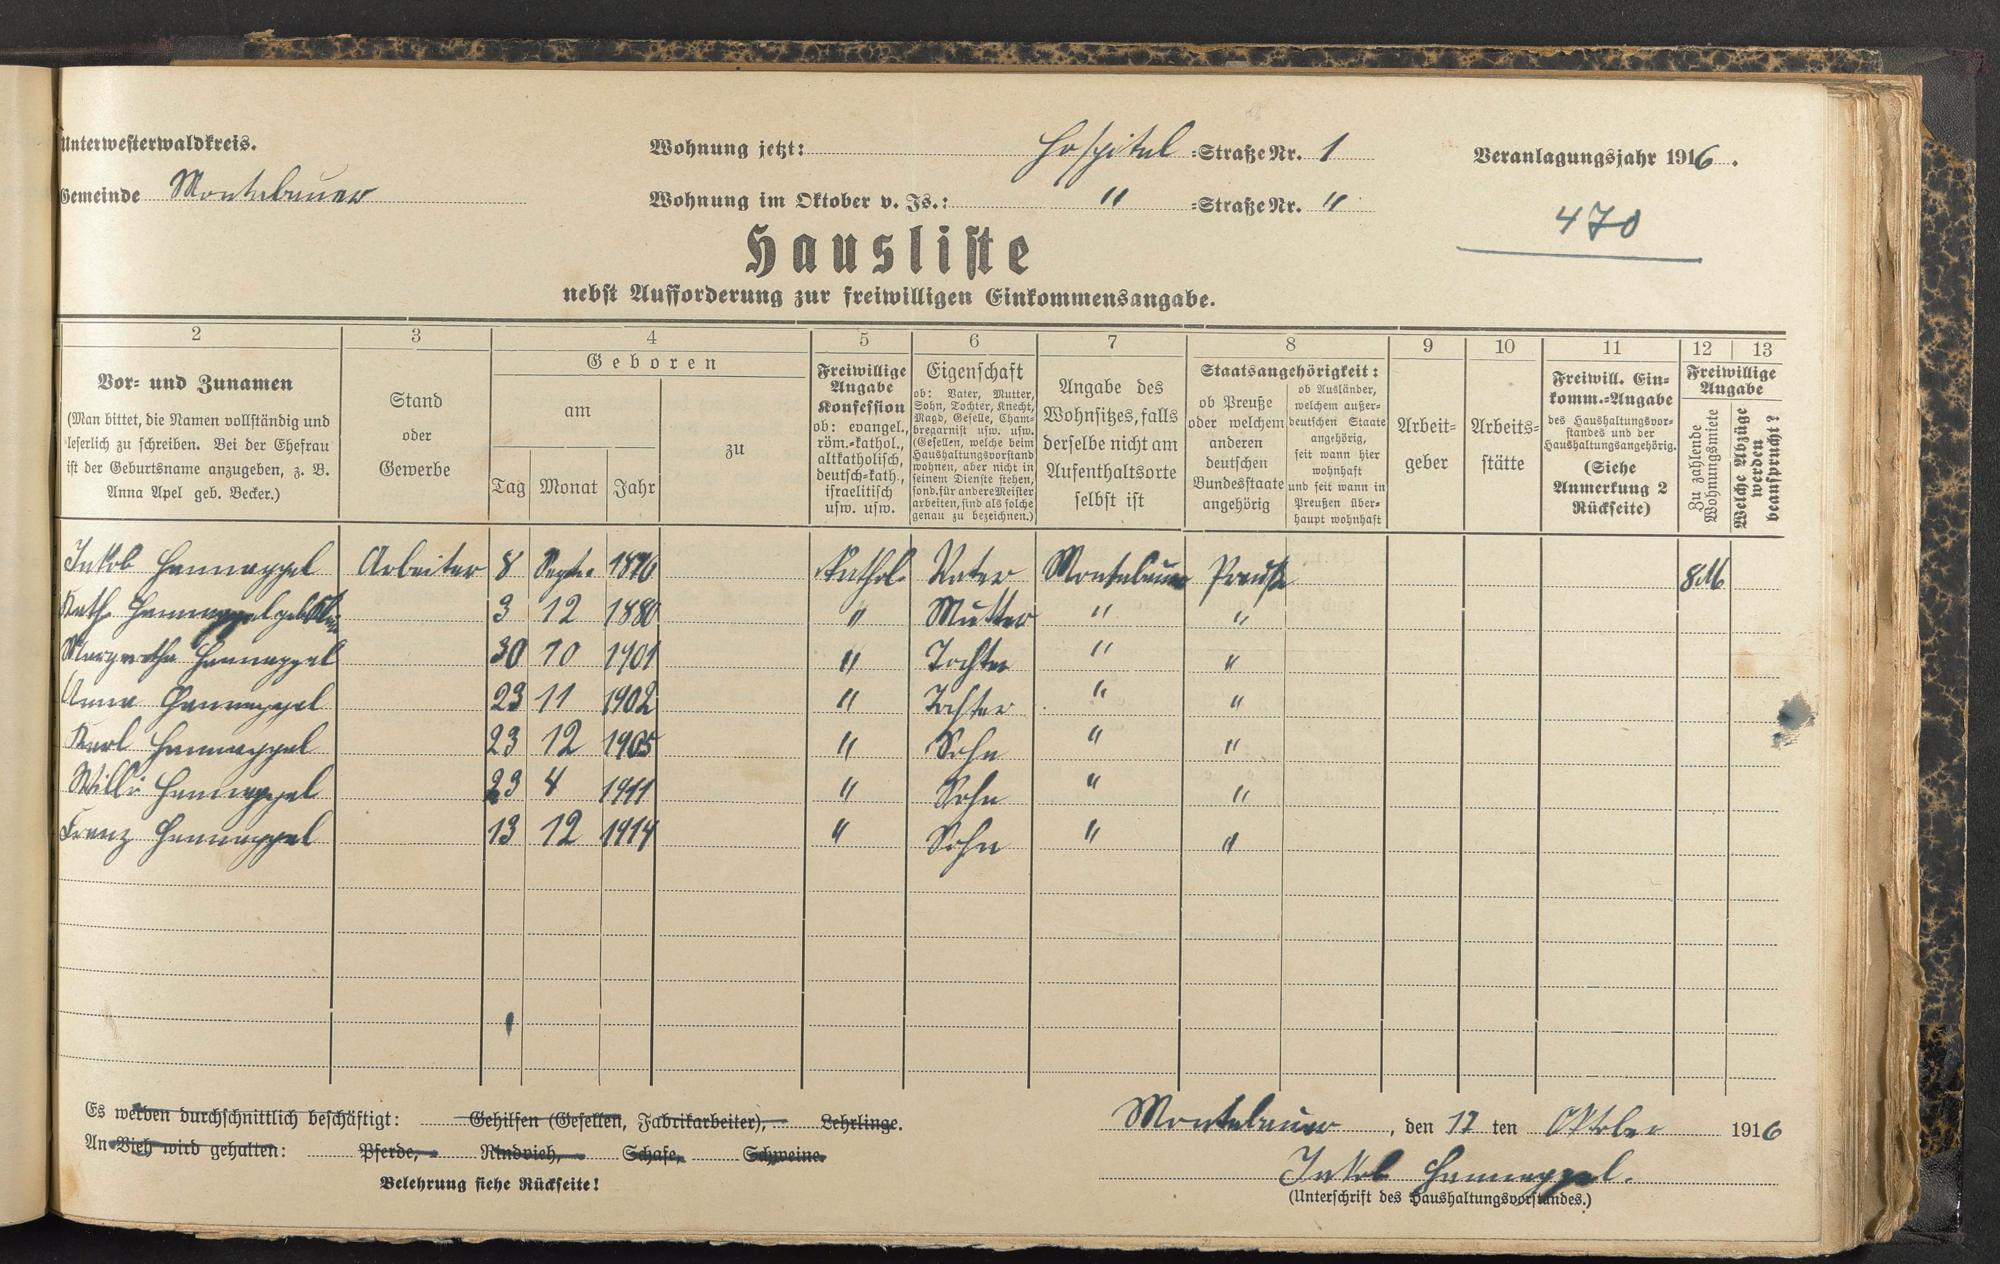 Unterwesterwaldkreis.
Wohnung jetzt: Hospital -Straße Nr. 1
Veranlagungsjahr 1916.
Gemeinde Montabaur
Wohnung im Oktober v. Js.: " -Straße Nr. "
470
Hausliste
nebst Aufforderung zur freiwilligen Einkommensangabe.
2 3 4 5 6 7 8 9 10 11 12 13
Vor- und Zunamen
(Man bittet, die Namen vollständig und
leserlich zu schreiben. Bei der Ehefrau
ist der Geburtsname anzugeben, z. B.
Anna Apel geb. Becker.)
Stand
oder
Gewerbe
Geboren
am
Tag Monat Jahr
zu
Freiwillige
Angabe
Konfession
ob: evangel.,
röm.-kathol.,
altkatholisch,
deutsch-kath.,
israelitisch
usw. usw.
Eigenschaft
ob: Vater, Mutter,
Sohn, Tochter, Knecht,
Magd, Geselle, Cham-
bregarnist usw. usw.
(Gesellen, welche beim
Haushaltungsvorstand
wohnen, aber nicht in
seinem Dienste stehen,
sond. für andere Meister
arbeiten, sind als solche
genau zu bezeichnen.)
Angabe des
Wohnsitzes, falls
derselbe nicht am
Aufenthaltsorte
selbst ist
Staatsangehörigkeit:
ob Preuße
oder welchem
anderen
deutschen
Bundesstaate
angehörig
ob Ausländer,
welchem außer-
deutschen Staate
angehörig,
seit wann hier
wohnhaft
und seit wann in
Preußen über-
haupt wohnhaft
Arbeit-
geber
Arbeits-
stätte
Freiwill. Ein-
komm.-Angabe
des Haushaltungsvor-
standes und der
Haushaltungsangehörig.
(Siehe
Anmerkung 2
Rückseite)
Freiwillige
Angabe
Zu zahlende
Wohnungsmiete
Welche Abzüge
werden
beansprucht?
Jakob Hannappel Arbeiter 8 Septe. 1876 Kathol. Vater Montabaur Preuße 8 M
Kath. Hannappel geb. 3 12 1880 " Mutter " "
Margretha Hannappel 30 10 1901 " Tochter " "
Anna Hannappel 23 11 1902 " Tochter " "
Karl Hannappel 23 12 1905 " Sohn " "
Willi Hannappel 23 4 1911 " Sohn " "
Franz Hannappel 13 12 1914 " Sohn " "
Es werden durchschnittlich beschäftigt: Gehilfen (Gesellen, Fabrikarbeiter), Lehrlinge.
An Vieh wird gehalten: Pferde, Rindvieh, Schafe, Schweine.
Belehrung siehe Rückseite!
Montabaur, den 12 ten Oktober 1916
Jakob Hannappel.
(Unterschrift des Haushaltungsvorstandes.)